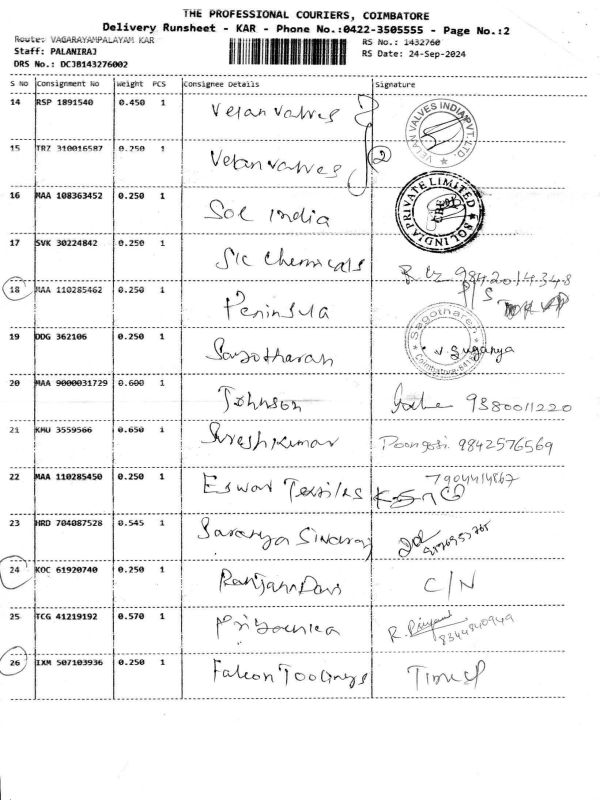 THE PROFESSIONAL COURIERS, COIMBATORE
Delivery Runsheet - KAR - Phone No.:0422-3505555 - Page No.:2
Route: VAGARAYAMPALAYAM KAR
RS No.: 1432760
Staff: PALANIRAJ
RS Date: 24-Sep-2024
DRS No.: DCJB143276002
S No Consignment No Weight PCS Consignee Details Signature
14 RSP 1891540 0.450 1 Velan Valves VELAN VALVES INDIA PVT. LTD.
15 TRZ 310016587 0.250 1 Velan Valves 2
16 MAA 108363452 0.250 1 SOL India SOL INDIA PRIVATE LIMITED
17 SVK 30224842 0.250 1 Sic Chemicals
984.20.14.34.8
18 MAA 110285462 0.250 1 Peninsula
19 DDG 362106 0.250 1 Sagotharan Sagotharen Coimbatore V. Suganya
20 MAA 9000031729 0.600 1 Johnson 9380011220
21 KMU 3559566 0.650 1 Sureshkumar 9842576569
22 MAA 110285450 0.250 1 Eswar Textiles 7904414867
23 HRD 704087528 0.545 1 Saranya
24 KOC 61920740 0.250 1 C/N
25 TCG 41219192 0.570 1 Priyanka R. 8344840949
26 IXM 507103936 0.250 1 Falcon Toolings